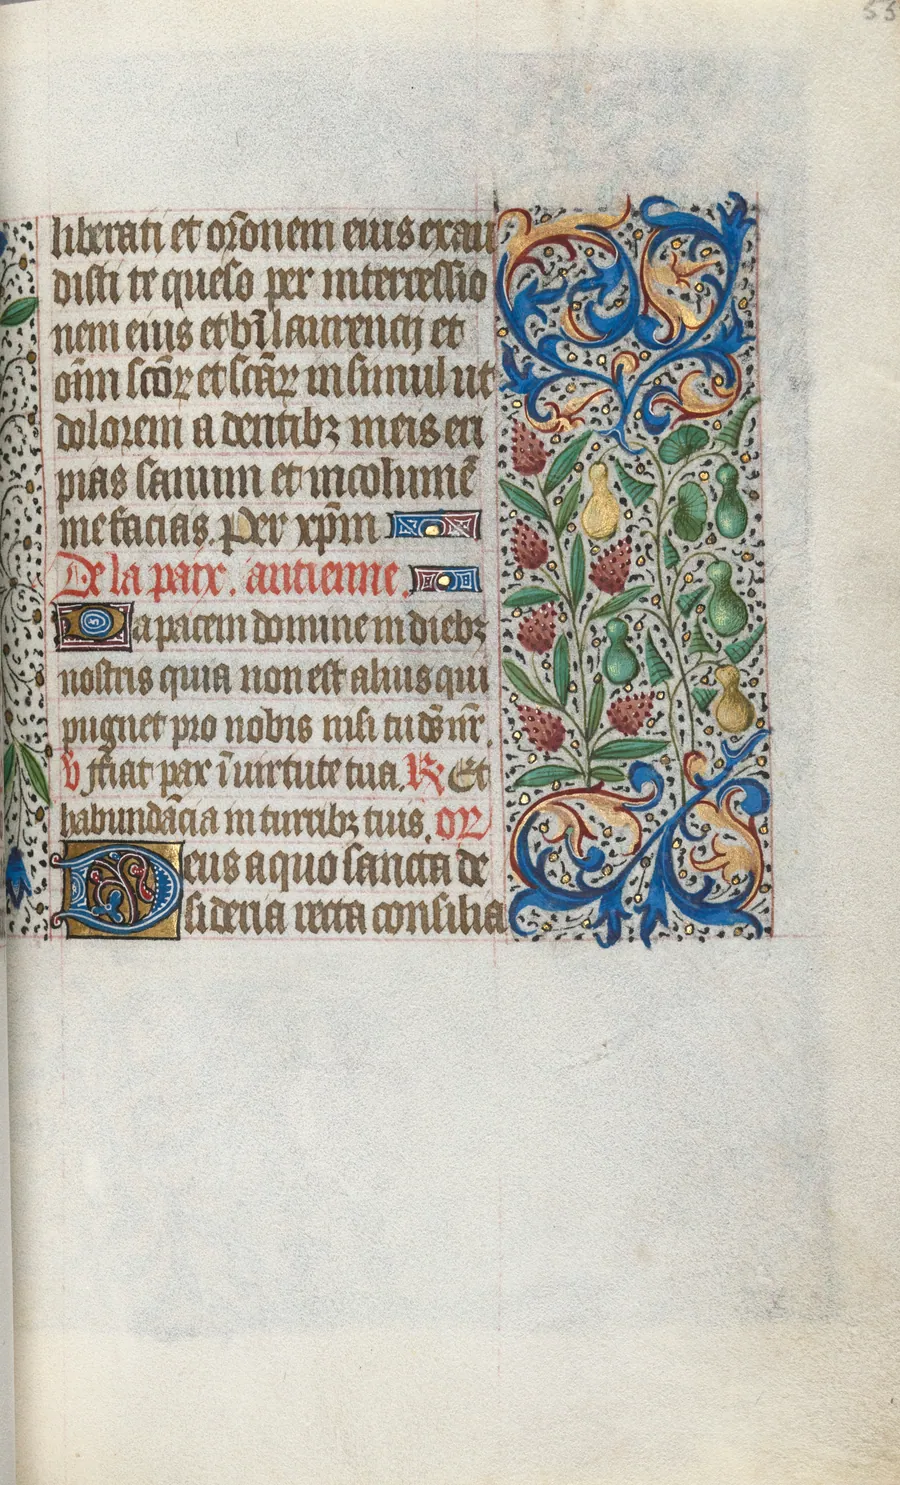 55
liberati et or̄onem eius exau
disti te queso per intercessio
nem eius et bt̄i laurencij et
oīm sctō⁊ et sctā⁊ insimul ut
dolorem a dentibꝫ meis eri
pias sanum et incolumē
me facias. Per xp̄m
De la paix. antienne.
Da pacem domine in diebꝫ
nostris quia non est alius qui
pugnet pro nobis nisi tu ds̄ nr̄.
V fiat pax ī uirtute tua. R Et
habundācia in turribꝫ tuis. or
Deus a quo sancta de
sideria recta consilia